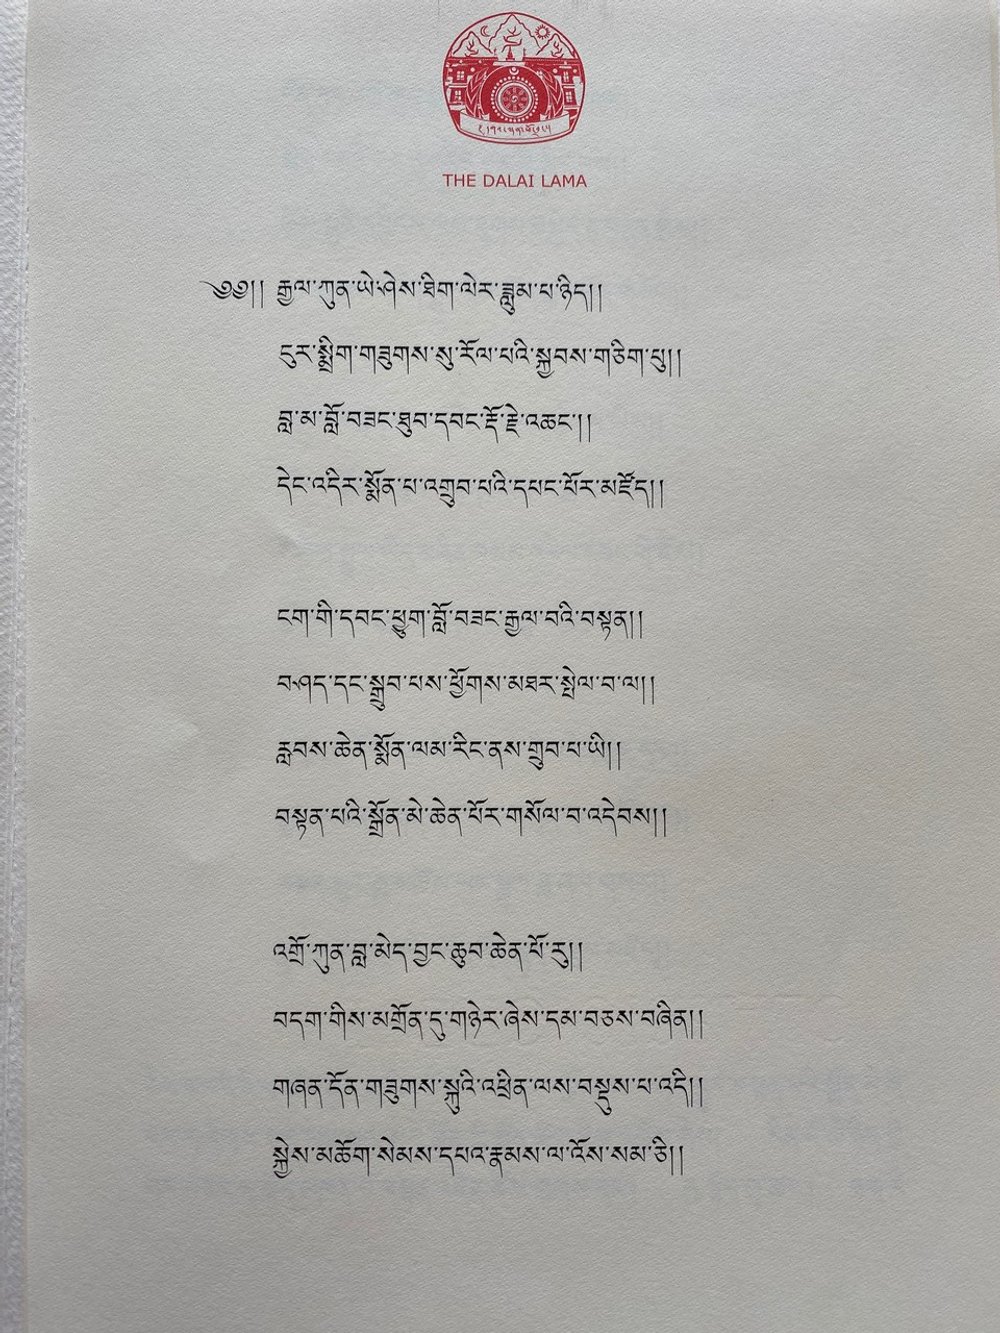 THE DALAI LAMA
༄༅།། རྒྱལ་ཀུན་ཡེ་ཤེས་ཐིག་ལེར་ཟླུམ་པ་ཉིད།།
ངུར་སྨྲིག་གཟུགས་སུ་རོལ་པའི་སྐྱབས་གཅིག་པུ།།
བླ་མ་བློ་བཟང་ཐུབ་དབང་རྡོ་རྗེ་འཆང་།།
དེང་འདིར་སྨོན་པ་འགྲུབ་པའི་དཔང་པོར་མཛོད།།
ངག་གི་དབང་ཕྱུག་བློ་བཟང་རྒྱལ་བའི་བསྟན།།
བཤད་དང་སྒྲུབ་པས་ཕྱོགས་མཐར་སྤེལ་བ་ལ།།
རླབས་ཆེན་སྨོན་ལམ་རིང་ནས་གྲུབ་པ་ཡི།།
བསྟན་པའི་སྒྲོན་མེ་ཆེན་པོར་གསོལ་བ་འདེབས།།
འགྲོ་ཀུན་བླ་མེད་བྱང་ཆུབ་ཆེན་པོ་རུ།།
བདག་གིས་མགྲོན་དུ་གཉེར་ཞེས་དམ་བཅས་བཞིན།།
གཞན་དོན་གཟུགས་སྐུའི་འཕྲིན་ལས་བསྡུས་པ་འདི།།
སྐྱེས་མཆོག་སེམས་དཔའ་རྣམས་ལ་འོས་སམ་ཅི།།